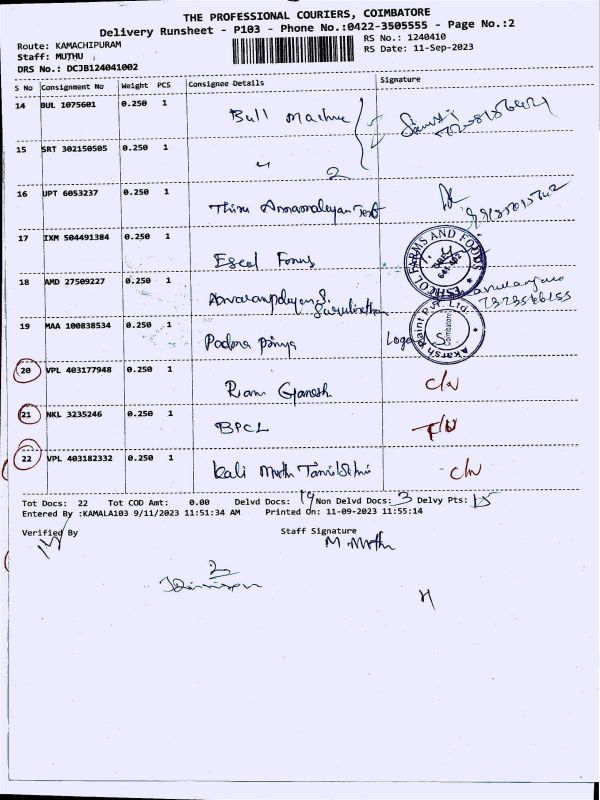 THE PROFESSIONAL COURIERS, COIMBATORE
Delivery Runsheet - P103 - Phone No.:0422-3505555 - Page No.:2
Route: KAMACHIPURAM
RS No.: 1240410
Staff: MUTHU
RS Date: 11-Sep-2023
DRS No.: DCJB124041002
S No Consignment No Weight PCS Consignee Details Signature
14 BUL 1075601 0.250 1 Bull Machine
15 SRT 302150505 0.250 1 " 2
16 UPT 6053237 0.250 1 Thiru Annamalaiyan Text
17 IXM 504491384 0.250 1 Escol Forms
ESHCOL FARMS AND FOODS
18 AMD 27509227 0.250 1
19 MAA 100838534 0.250 1 Padma Priya
Akarsh Paint Pvt. Ltd.
Coimbatore
20 VPL 403177948 0.250 1 Ram Ganesh C/N
21 NKL 3235246 0.250 1 BPCL
22 VPL 403182332 0.250 1 Kali Muth Tamil Selvi C/N
Tot Docs: 22 Tot COD Amt: 0.00 Delvd Docs: 19 Non Delvd Docs: 3 Delvy Pts: 15
Entered By :KAMALA103 9/11/2023 11:51:34 AM Printed On: 11-09-2023 11:55:14
Verified By Staff Signature
M. Muthu
2